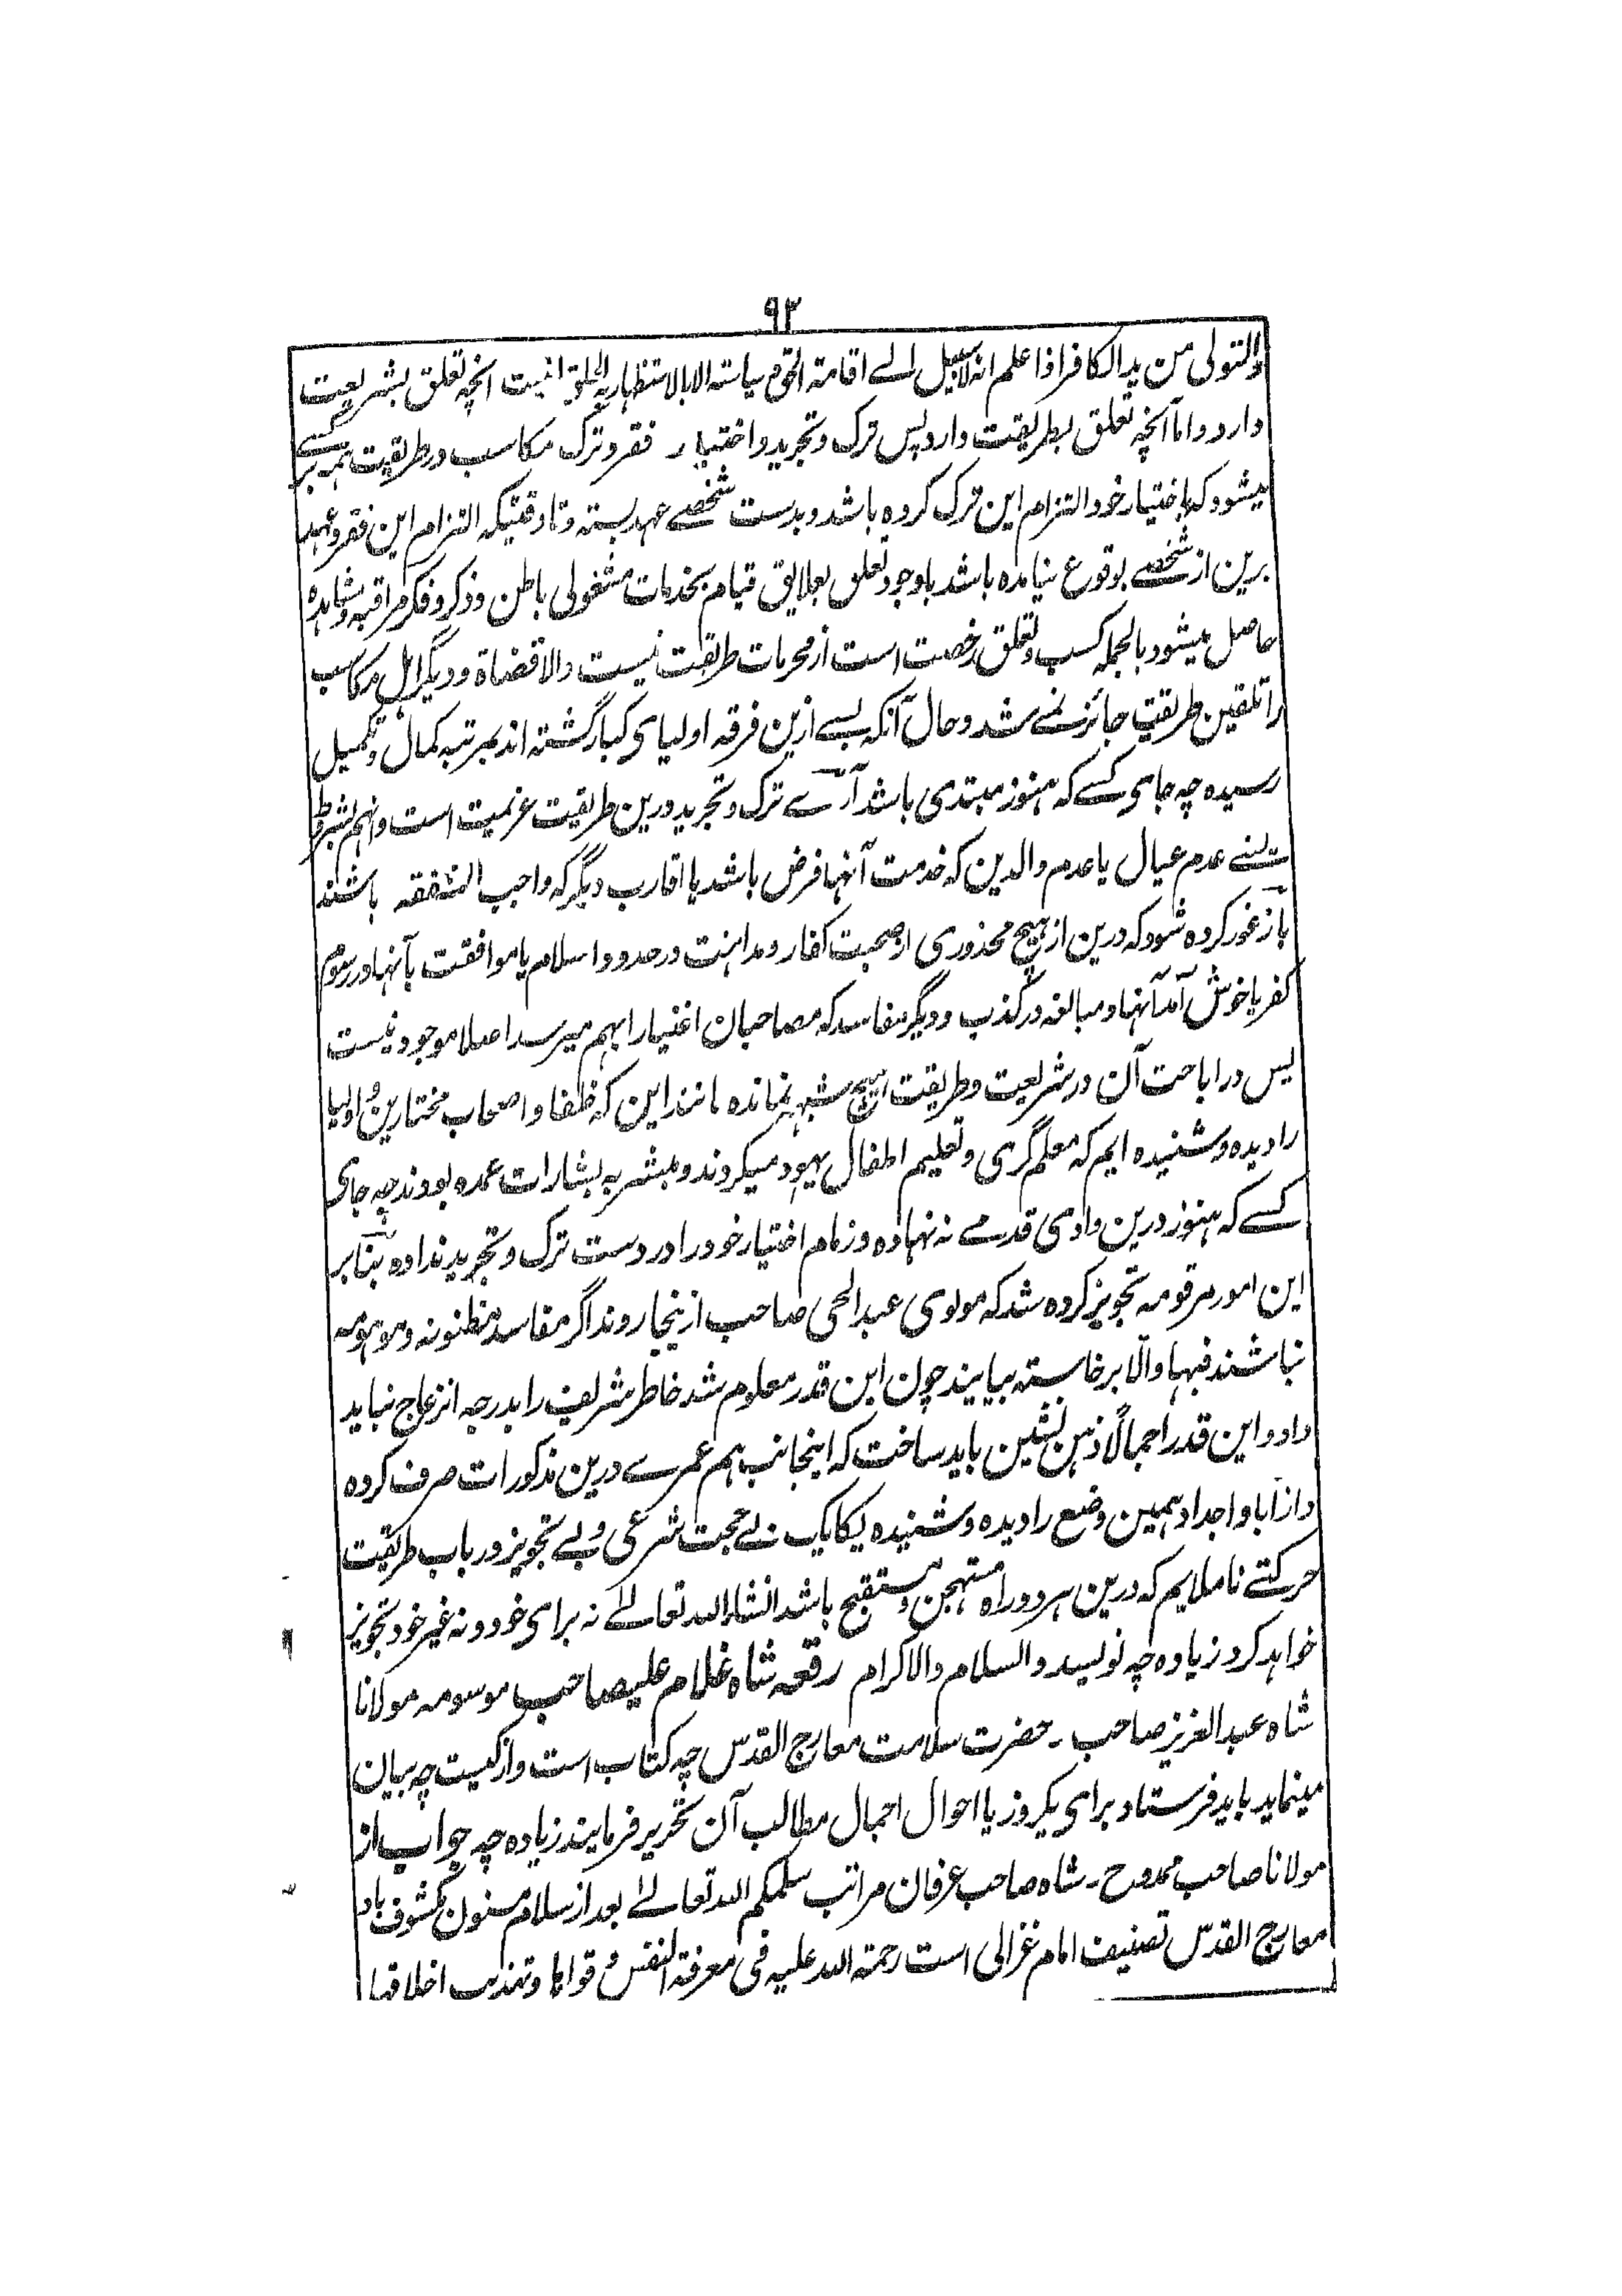 ۹۲
والتولی من ید الکافر اذا علم انه لا سبیل الے اقامته الحق وسیاسته الا بالاستظهار به اینست انچه تعلق بشریعت
دارد و اما آنچه تعلق بطریقت دارد پس ترک و تجرید و اختیار فقر و ترک مکاسب در طریقت بهمه بر کسے
میشود که باختیار خود التزام این ترک کرده باشد و بدست شخصے عهد بسته و تا وقتیکه التزام این فقر و عهد
برین از شخصے بوقوع نیامده باشد باوجود تعلق بعلایق قیام بخدمات مشغولی باطن و ذکر و فکر مراقبه و مشاهده
حاصل میشود بالجمله کسب و تعلق رخصت است از محرمات طریقت نیست والا قضاة و دیگر اهل مکاسب
را تلقین طریقت جائز نمے شد و حال آنکه بسے ازین فرقه اولیای کبار گشته اند بمرتبه کمال و تکمیل
رسیده چه جای کسے که هنوز مبتدی باشد آرے ترک و تجرید درین طریقت عزیمت است و آنهم بشروط
یعنے عدم عیال یا عدم والدین که خدمت آنها فرض باشد یا اقارب دیگر که واجب النفقه باشند
باز غور کرده شود که درین از هیچ محذوری از صحبت کفار و مداهنت در حدود اسلام یا موافقت بآنها در رسوم
کفر یا خوش آمد آنها و مبالغه در کذب و دیگر مفاسد که مصاحبان اغنیا را بهم میرسد اصلا موجود نیست
پس در اباحت آن در شریعت و طریقت هیچ شبهه نمانده مانند این که خلفا و اصحاب مختارین اولیا
را دیده و شنیده ایم که معلم گری و تعلیم اطفال یهود میکردند و مبشر به بشارات عمده بودند چه جای
کسے که هنوز درین وادی قدمے نه نهاده و زمام اختیار خود را در دست ترک و تجرید نداده بنابر
این امور مرقومه تجویز کرده شد که مولوی عبد الحی صاحب از ینجا روند اگر مفاسد مظنونه و موهومه
نباشند فبها والّا برخاسته بیایند چون این قدر معلوم شد خاطر شریف را بدرجه انزعاج نباید
داد و این قدر اجمالًا ذهن نشین باید ساخت که اینجانب هم عمرے درین مذکورات صرف کرده
و از آبا و اجداد همین وضع را دیده و شنیده یکایک بے حجت شرعی و بے تجویز در باب طریقت
حرکتے ناملایم که درین هر دو راه مستهجن و مستقبح باشد انشاء الله تعالے نه برای خود و نه غیر خود تجویز
خواهد کرد زیاده چه نویسد والسلام والاکرام رقعه شاه غلام علیصاحب موسومه مولانا
شاه عبد العزیز صاحب ۔ حضرت سلامت معارج القدس چه کتاب است و از کمیت چه بیان
مینماید باید فرستاد برای یکروز یا احوال اجمال مطالب آن تحریر فرمایند زیاده چه جواب از
مولانا صاحب ممدوح ۔ شاه صاحب عرفان مراتب سلمکم الله تعالے بعد از سلام مسنون مکشوف باد
معارج القدس تصنیف امام غزالی است رحمته الله علیه فی معرفة النفس و قواها و تهذیب اخلاقها